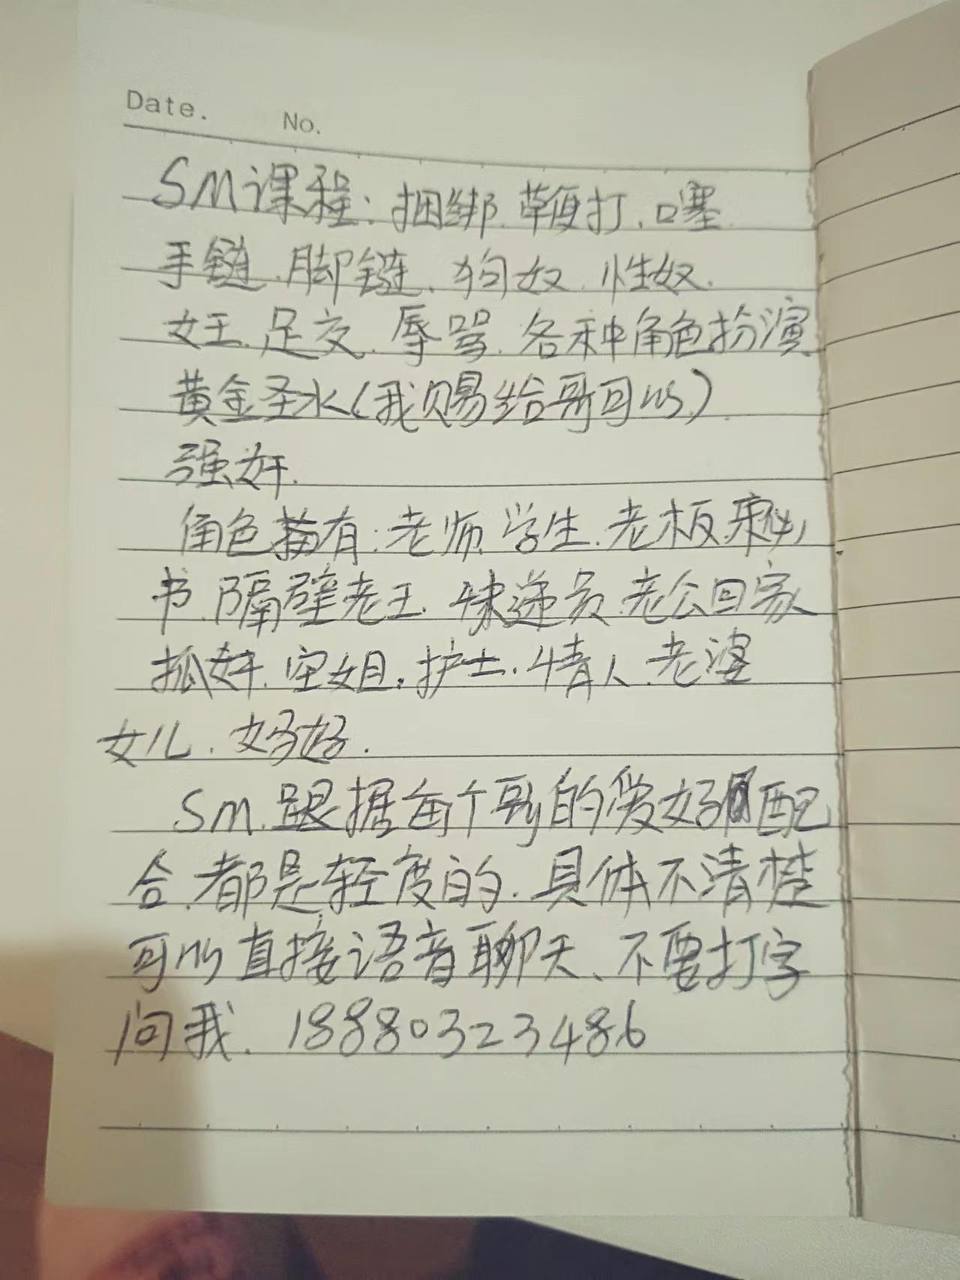 Date. No.
SM课程：捆绑.鞭打.口塞.
手链.脚链.狗奴.性奴.
女王.足交.辱骂.各种角色扮演
黄金圣水(我赐给哥可以).
强奸.
角色有：老师.学生.老板.秘
书.隔壁老王.快递员.老公回家
抓奸.空姐.护士.情人.老婆
女儿.妈妈.
Sm.跟据每个哥的爱好配
合.都是轻度的.具体不清楚
可以直接语音聊天、不要打字
问我.18880323486